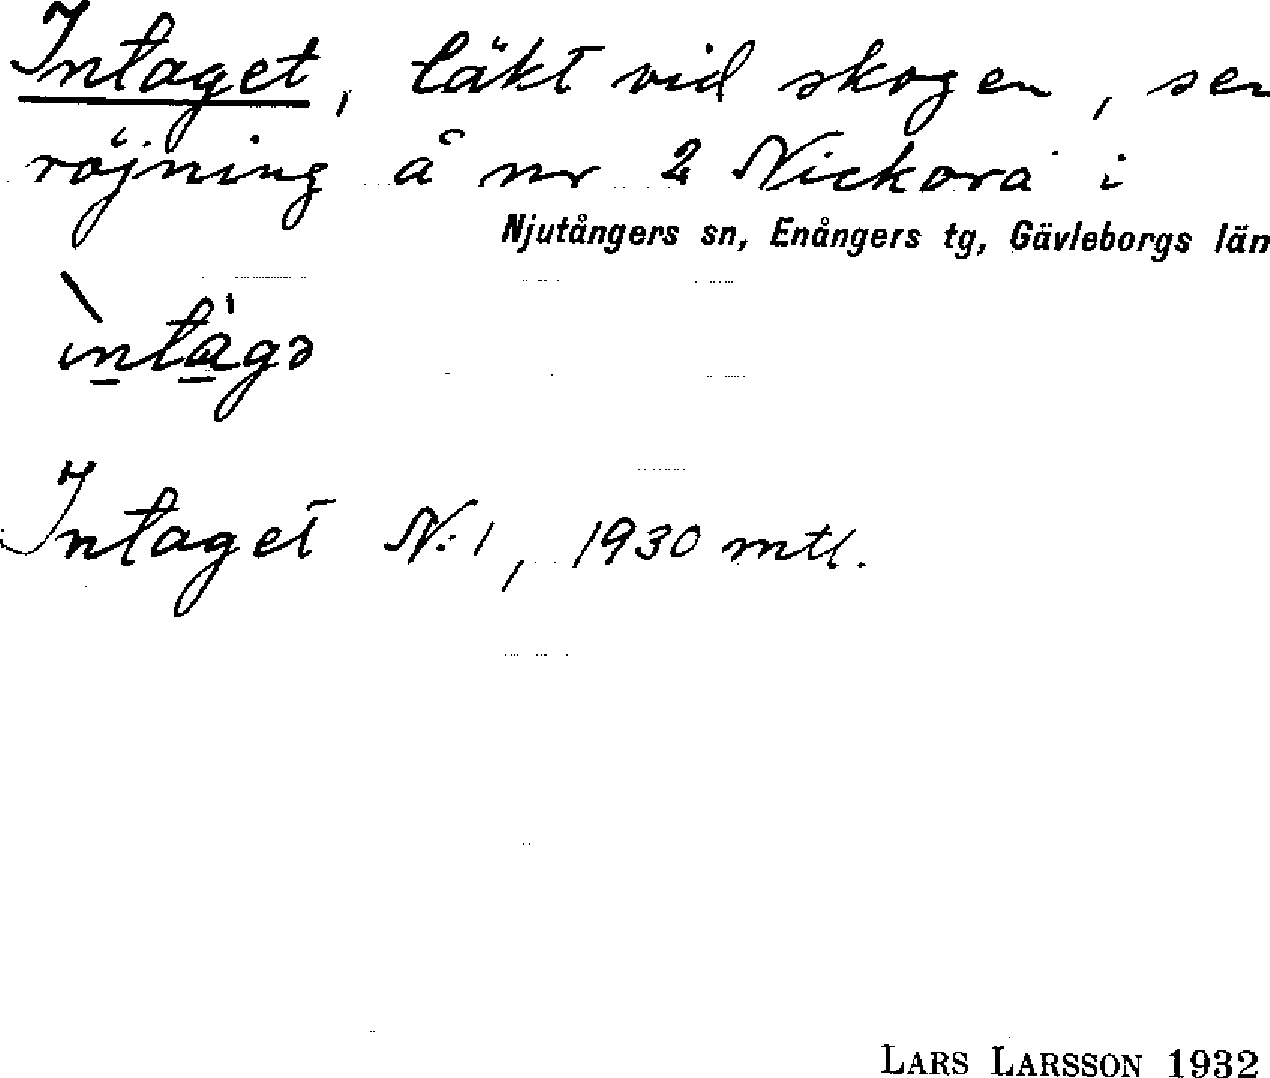 Intaget, täkt vid skogen, sen
röjning å nr 2 Nickora i
Njutångers sn, Enångers tg, Gävleborgs län
ìntágə
Intaget N:1, 1930 mtl.
LARS LARSSON 1932